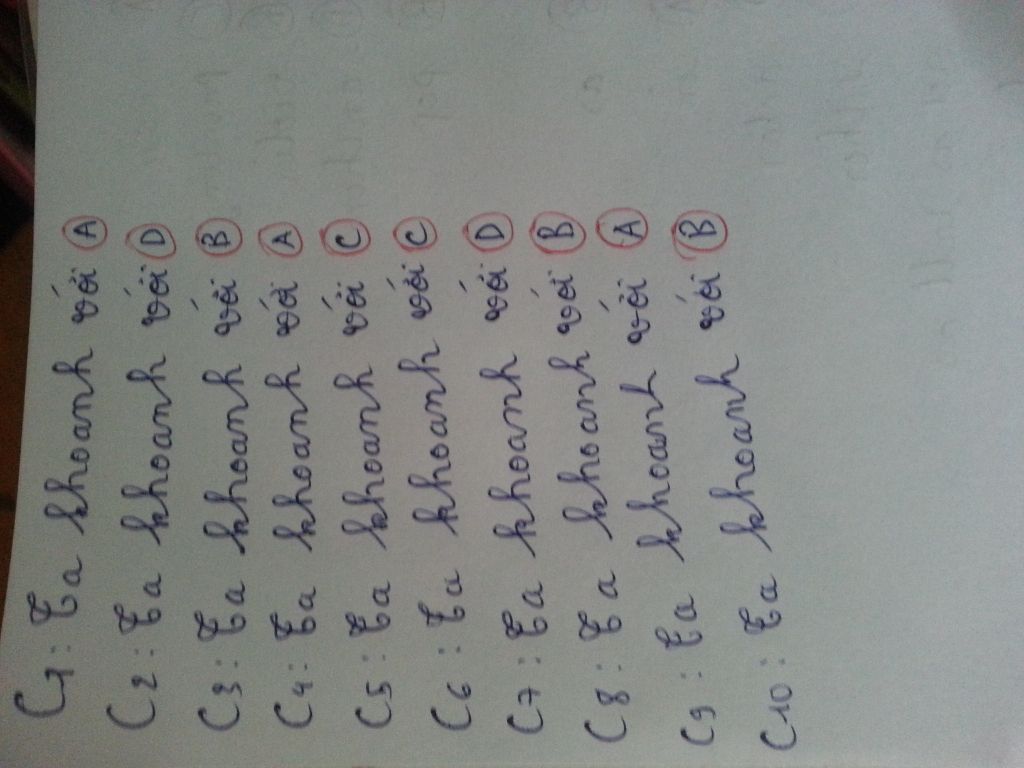 C1: Ta khoanh với A
C2: Ta khoanh với D
C3: Ta khoanh với B
C4: Ta khoanh với A
C5: Ta khoanh với C
C6: Ta khoanh với C
C7: Ta khoanh với D
C8: Ta khoanh với B
C9: Ta khoanh với A
C10: Ta khoanh với B